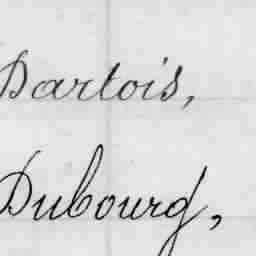 Dartois,
Dubourg,